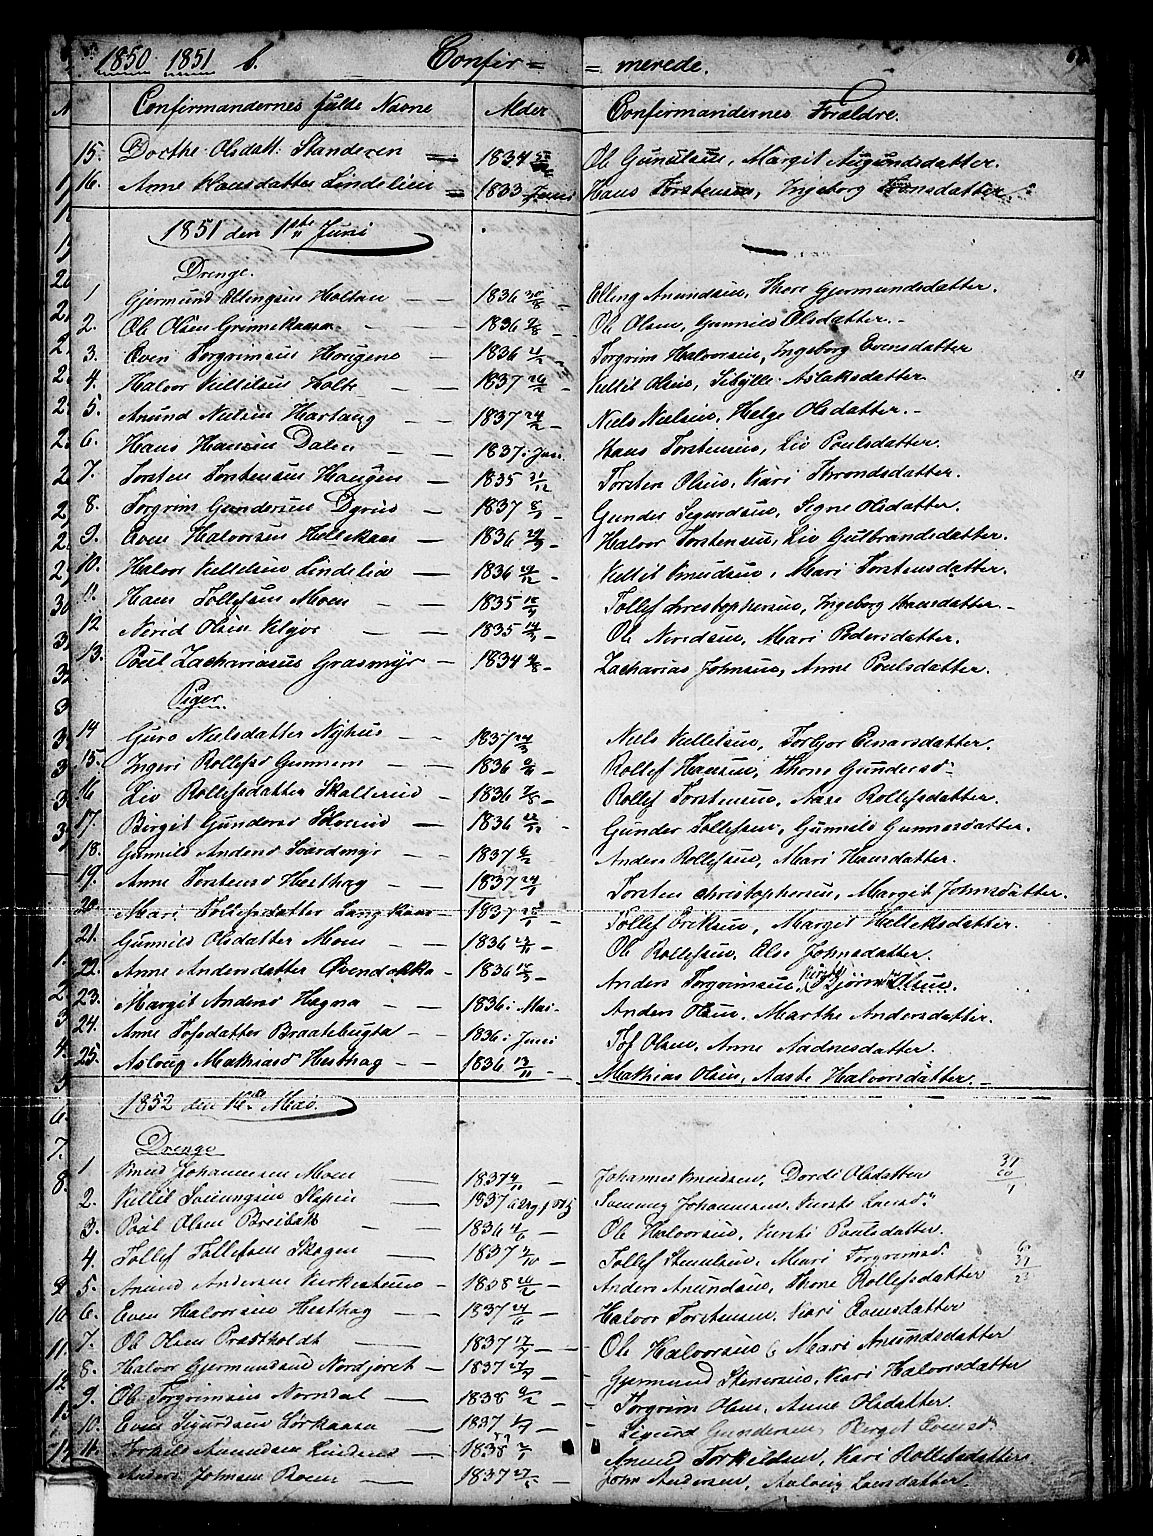 1850 1851 b. Confir= =merede.
Confirmandernes fulde Navne Alder Confirmandernes Forældre.
15. Dorthe Olsdatt: Standeren 1834 Ole Gunulsen, Margit Augundsdatter.
16. Anne Hansdatter Lindelien 1833 Juni Hans Torstensen, Ingeborg Hansdatter
1851 den 1ste Juni
Drenge.
1 Gjermund Ellingsen Holtan 1836 30/8 Elling Anundsen, Thore Gjermundsdatter.
2. Ole Olsen Grönnekaasa 1836 2/8 Ole Olsen, Gunnild Olsdatter.
3. Even Torgrimsen Hougene 1836 21/2 Torgrim Halvorsen, Ingeborg Evensdatter
4. Halvor Kittilsen Holte 1837 26/2 Kittil Olsen, Sibylle Aslaksdatter
5. Anund Nielsen Hartaug 1837 24/2 Niels Nielsen, Helge Olsdatter.
6. Hans Hansen Dalen 1837 i Juni Hans Torstensen, Liv Poulsdatter
7. Torsten Torstensen Haugen 1835 31/12 Torsten Olsen, Kari Throndsdatter.
8. Torgrim Gundersen Dyrud 1837 8/1 Gunder Sigurdsen, Signe Olsdatter.
9. Even Halvorsen Hellekaas 1836 Halvor Torstensen, Liv Gulbrandsdatter.
10. Halvor Kittelsen Lindelia 1836 Kittil Knudsen, Mari Torstensdatter.
11. Hans Tollefsen Moen 1835 Tollef Christophersen, Ingeborg Hansdatter.
12 Nerid Olsen 1835 Ole Neridsen, Mari Pedersdatter.
13. Poul Zachariasen Grasmyr 1834 Zacharias Johnsen, Anne Poulsdatter.
Piger
14 Guro Nielsdatter Nyhus 1837 24/3 Niels Kittelsen, Torbjor Einarsdatter.
15. Ingeri Rollefsd Gunnem 1836 Rollef Hansen, Thone Gundersd
16 Liv Rollefsdatter Skalterud 1836 2/8 Rollef Torstensen, Aase Rollefsdatter.
17. Birgit Gundersd 1836 Gunder Tollefsen, Gunnild Gunnersdatter.
18. Gunnild Andersd Svardmyr 1837 6/2 Anders Rollefsen, Mari Hansdatter.
19. Anne Torstensd Hesthag 1837 24/1 Torsten Christophersen, Margit Johnsdatter.
20. Mari Tollefsdatter Langkaas 1837 Tollef Eriksen, Margit Helleksdatter.
21. Gunnild Olsdatter Moen 1836 Ole Rollefsen, Else Johnsdatter.
22. Anne Andersdatter Övendokka 1836 Anders Torgrimsen, Bjørn
23. Margit Andersd Hagna 1836 i Mai Anders Olsen, Marthe Andersdatter.
24. Anne Tofsdatter Braatebugta 1836 i Juni Tof Olsen, Anne Aadnesdatter.
25. Aslaug Mathiasd Hesthag 1836 13/11 Mathias Olsen, Aaste Halvorsdatter.
1852 den Mai.
Drenge
1 Knud Johannesen Moen 1837 Johannes Knudsen, Dordi Olsdatter
2. Kittil Sveinungsen 1837 Sveinung Johannesen, Kirsti Larsd
3. Poul Olsen Breibak 1836 Ole Halvorsen, Kirsti Poulsdatter.
4. Tollef Tollefsen Skogen 1837 2/10 Tollef Stenulsen, Mari Torgrimsd.
5. Anund Andersen 1838 Anders Anundsen, Thone Rollefsdatter
6. Even Halvorsen Hesthag 1837 Halvor Torstensen, Kari Evensdatter
7. Ole Olsen Præstholdt 1837 Ole Halvorsen, Mari Anundsdatter
8. Halvor Gjermundsen Nordjoret 1837 Gjermund Stenersen, Kari Halvorsdatter
9. Ole Torgrimsen Norndal 1838 Torgrim Olsen, Anne Olsdatter.
10. Even Sigurdsen Lörkaasa 1837 Sigurd Gundersen, Birgit Evensd
11. Torkild Anundsen 1838 Anund Torkildsen, Kari Rollefsdatter
Anders Johnsen Boen 1837 John Andersen, Aslaug Larsdatter